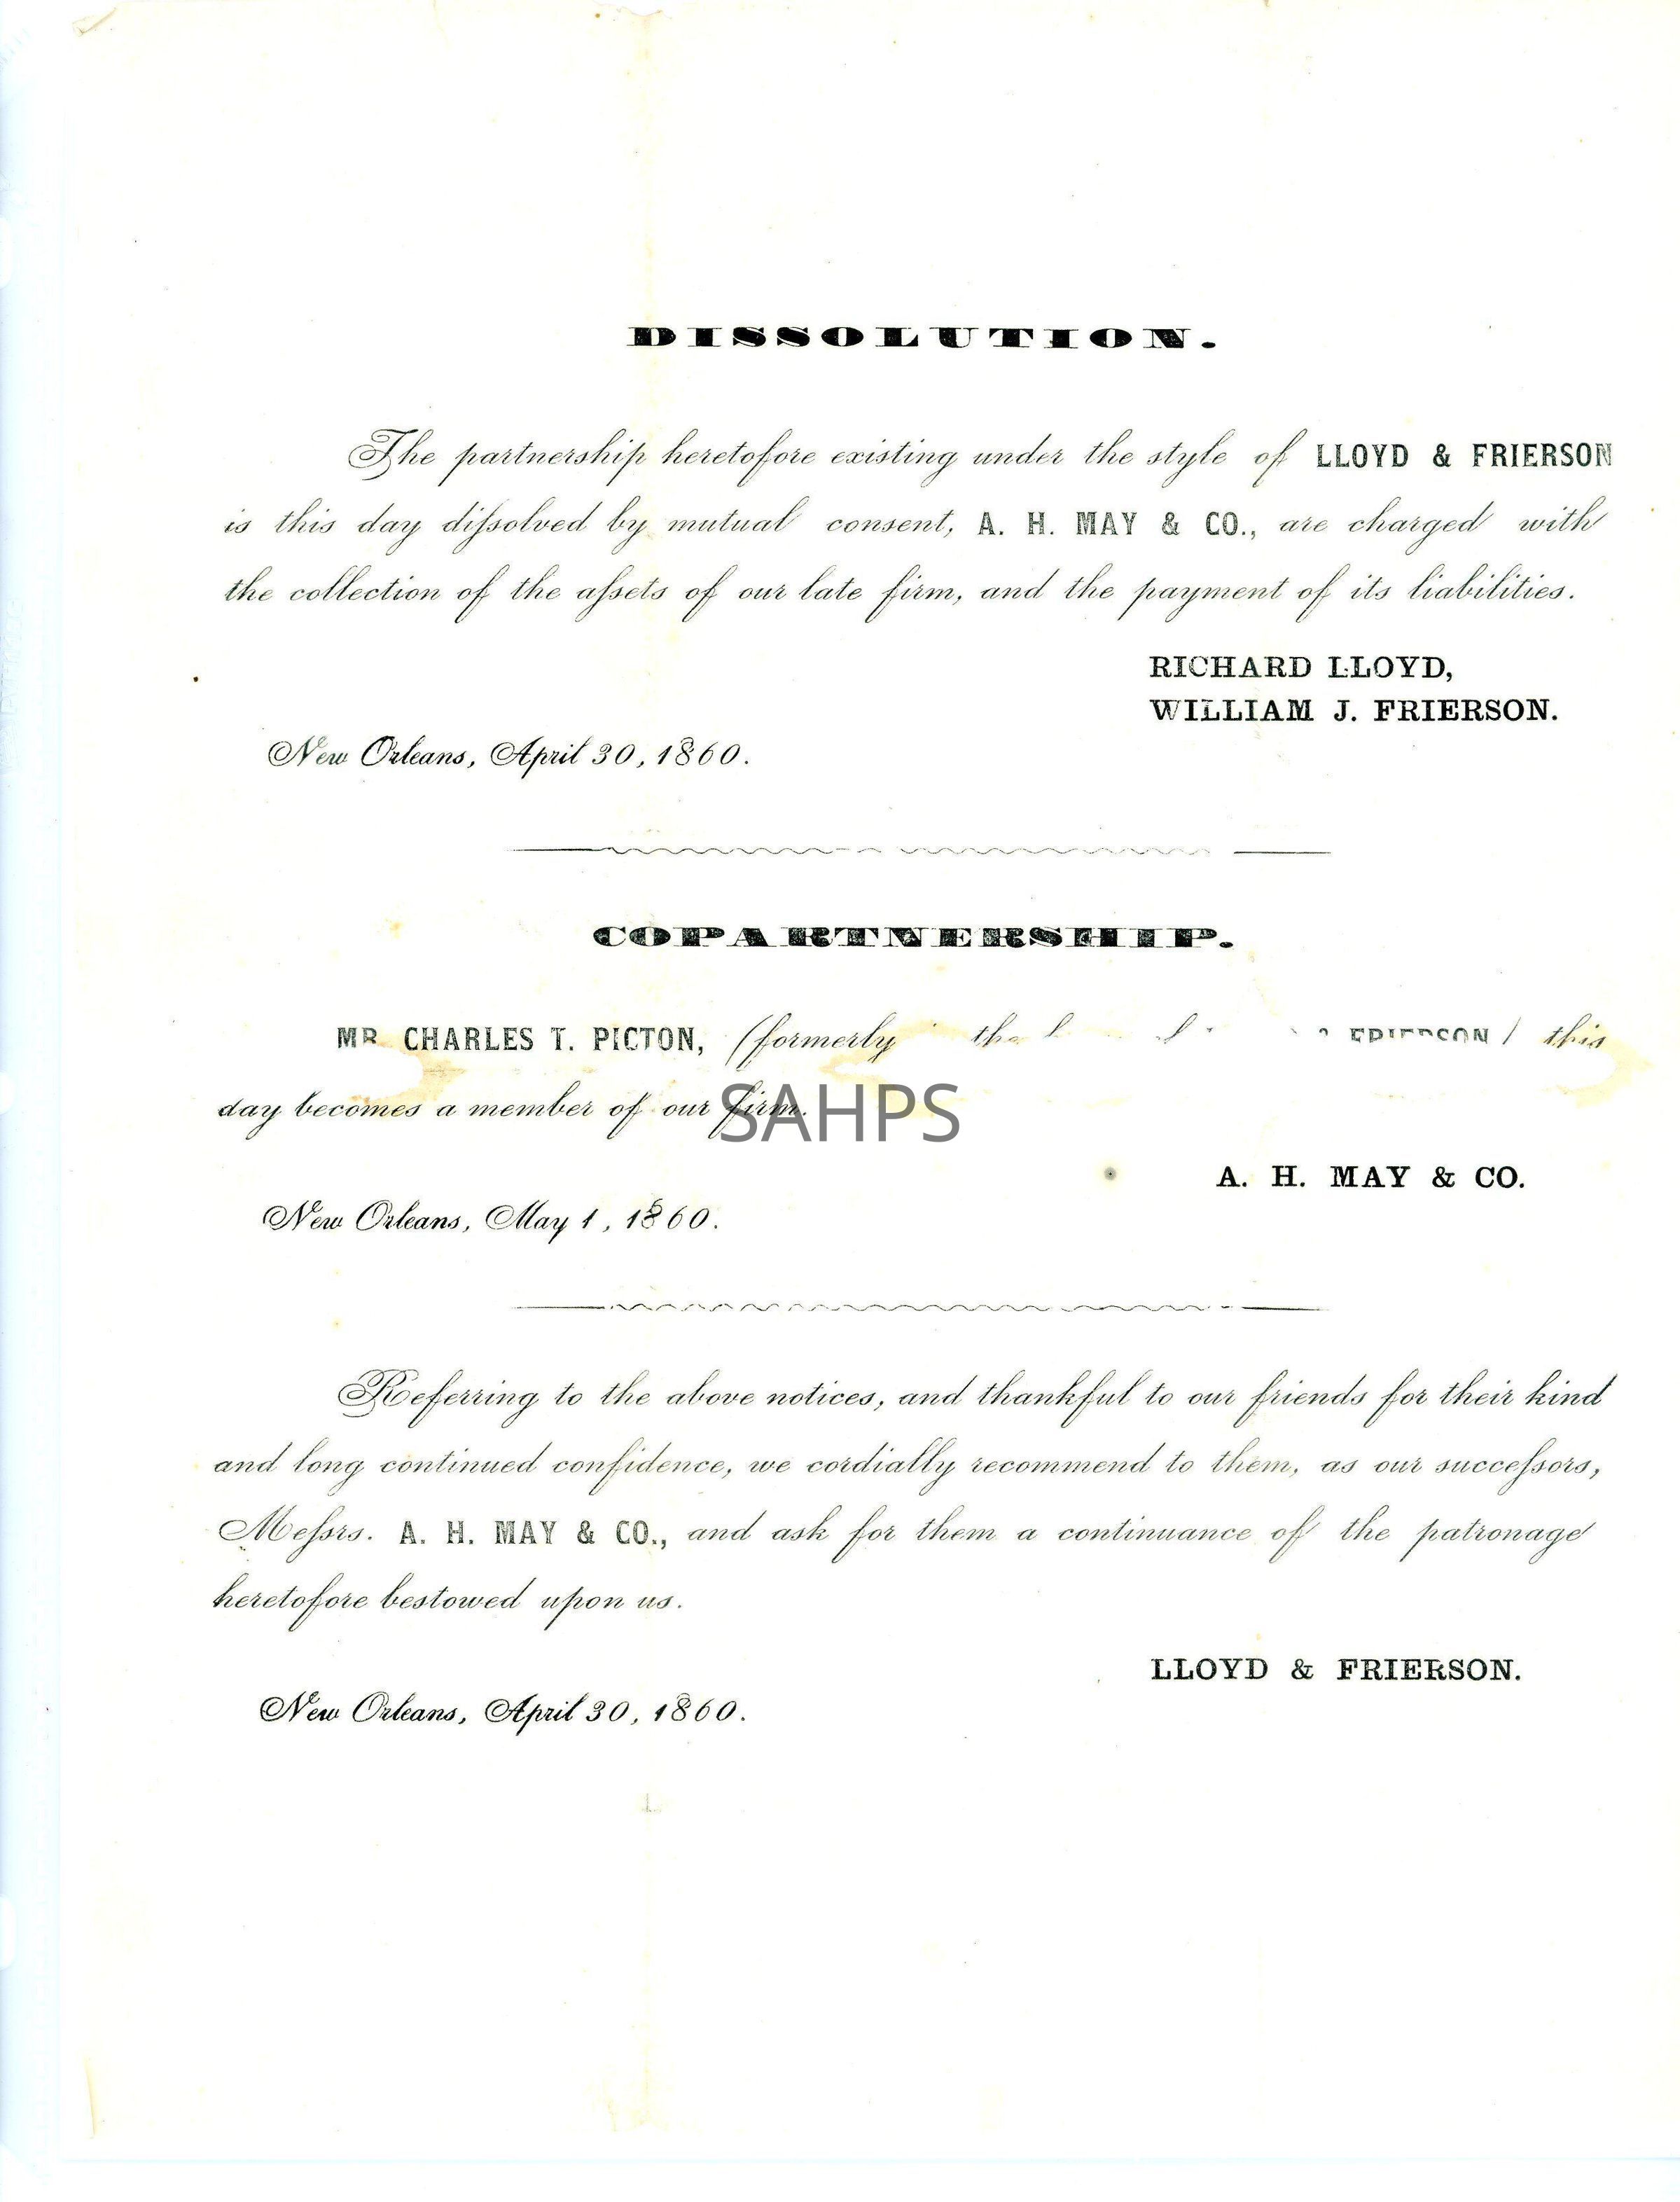 DISSOLUTION.
The partnership heretofore existing under the style of LLOYD & FRIERSON
is this day diſsolved by mutual consent, A. H. MAY & CO., are charged with
the collection of the aſsets of our late firm, and the payment of its liabilities.
RICHARD LLOYD,
WILLIAM J. FRIERSON.
New Orleans, April 30, 1860.
COPARTNERSHIP.
MR. CHARLES T. PICTON, (formerly the FRIERSON) this
day becomes a member of our firm.
SAHPS
A. H. MAY & CO.
New Orleans, May 1, 1860.
Referring to the above notices, and thankful to our friends for their kind
and long continued confidence, we cordially recommend to them, as our succeſsors,
Meſsrs. A. H. MAY & CO., and ask for them a continuance of the patronage
heretofore bestowed upon us.
LLOYD & FRIERSON.
New Orleans, April 30, 1860.